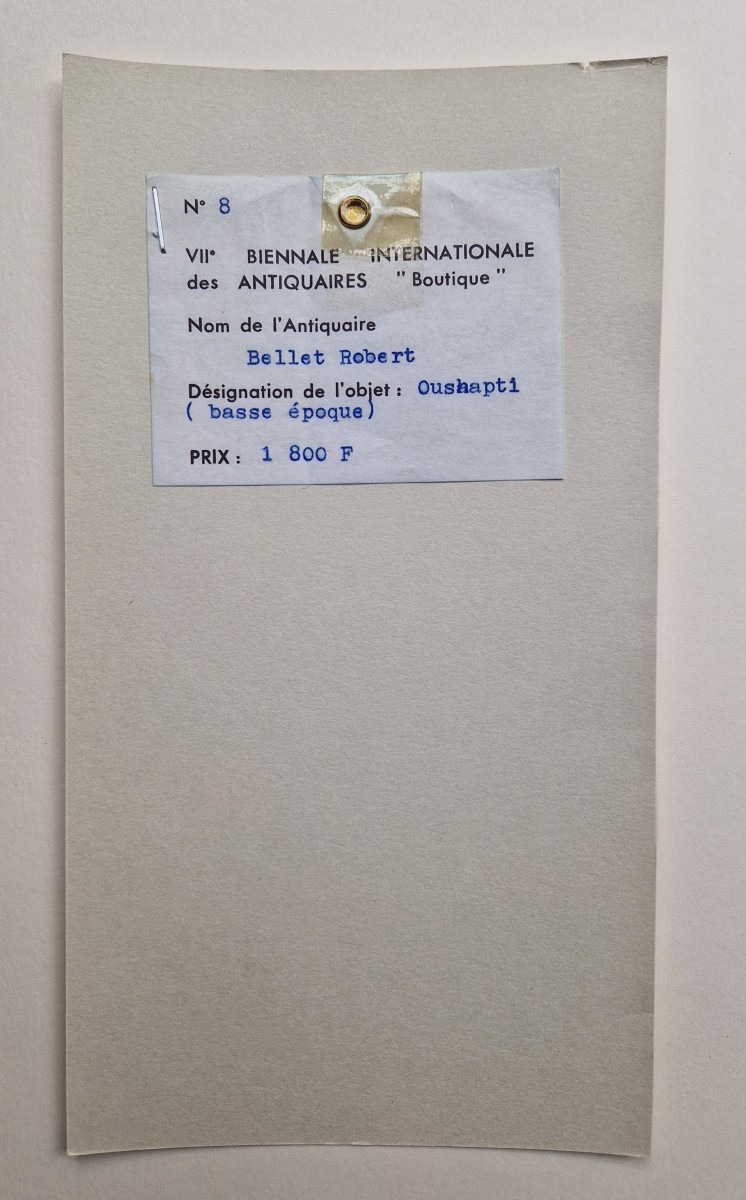 N° 8
VII° BIENNALE INTERNATIONALE
des ANTIQUAIRES "Boutique"
Nom de l'Antiquaire
Bellet Robert
Désignation de l'objet : Oushapti
( basse époque)
PRIX : 1 800 F